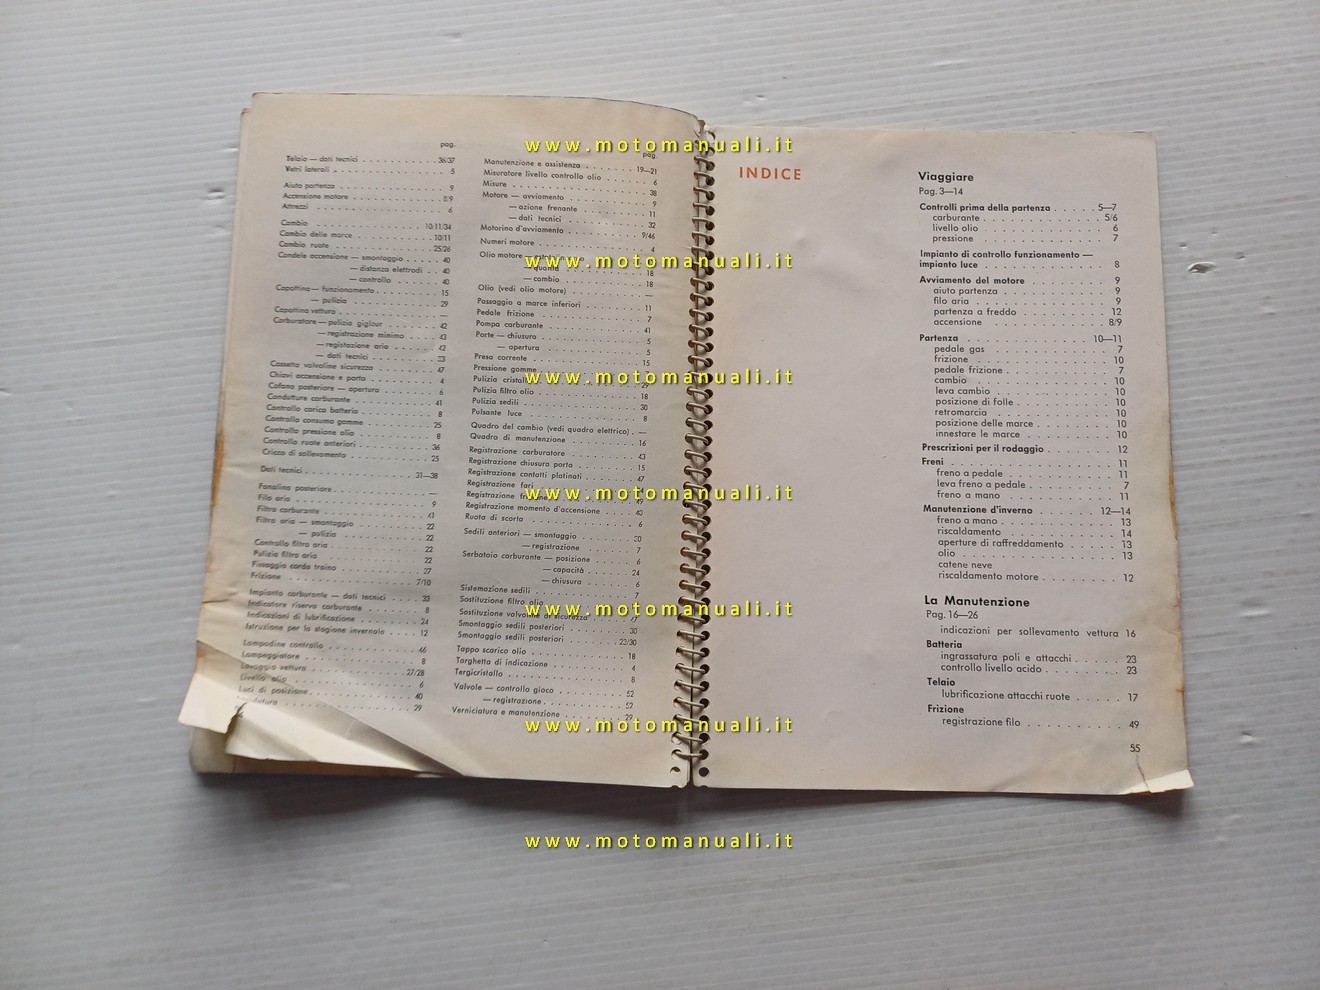 pag.
Telaio — dati tecnici . . . . . . . . . 36/37
Vetri laterali . . . . . . . . . . . . 5
Aiuto partenza . . . . . . . . . . . 9
Accensione motore . . . . . . . . . 8/9
Attrezzi . . . . . . . . . . . . . 6
Cambio . . . . . . . . . . . . . 10/11/34
Cambio delle marce . . . . . . . . . 10/11
Cambio ruote . . . . . . . . . . . 25/26
Candele accensione — smontaggio . . . . 40
— distanza elettrodi . . 40
— controllo . . . . . 40
Capottina — funzionamento . . . . . . 15
— pulizia . . . . . . . . . 29
Capottina vettura . . . . . . . . . . —
Carburatore — pulizia gigleur . . . . . 42
— registrazione minimo . . . . 43
— registazione aria . . . . . 42
— dati tecnici . . . . . . . 33
Cassetta valvoline sicurezza . . . . . . 47
Chiavi accensione e porta . . . . . . . 4
Cofano posteriore — apertura . . . . . . 6
Condutture carburante . . . . . . . . 41
Controllo carica batteria . . . . . . . . 8
Controllo consumo gomme . . . . . . . 25
Controllo pressione olio . . . . . . . . 8
Controllo ruote anteriori . . . . . . . . 36
Cricco di sollevamento . . . . . . . . 25
Dati tecnici . . . . . . . . . . . . 31—38
Fanalino posteriore . . . . . . . . . . —
Filo aria . . . . . . . . . . . . . 9
Filtro carburante . . . . . . . . . . 41
Filtro aria — smontaggio . . . . . . . 22
— pulizia . . . . . . . . . 22
Controllo filtro aria . . . . . . . . . 22
Pulizia filtro aria . . . . . . . . . . 22
Fissaggio corda traino . . . . . . . . 27
Frizione . . . . . . . . . . . . . 7/10
Impianto carburante — dati tecnici . . . . 33
Indicatore riserva carburante . . . . . . 8
Indicazioni di lubrificazione . . . . . . 24
Istruzione per la stagione invernale . . . 12
Lampadine controllo . . . . . . . . . 46
Lampeggiatore . . . . . . . . . . . 8
Lavaggio vettura . . . . . . . . . . 27/28
Livello olio . . . . . . . . . . . . 6
Luci di posizione . . . . . . . . . . 40
29
pag.
Manutenzione e assistenza . . . . . . 19—21
Misuratore livello controllo olio . . . . . 6
Misure . . . . . . . . . . . . . . 38
Motore — avviamento . . . . . . . . . 9
— azione frenante . . . . . . . 11
— dati tecnici . . . . . . . . 32
Motorino d'avviamento . . . . . . . . 9/46
Numeri motore . . . . . . . . . . . 4
Olio motore
18
— cambio . . . . . . . . . 18
Olio (vedi olio motore) . . . . . . . . —
Passaggio a marce inferiori . . . . . . . 11
Pedale frizione . . . . . . . . . . . 7
Pompa carburante . . . . . . . . . . 41
Porte — chiusura . . . . . . . . . . . 5
— apertura . . . . . . . . . . 5
Presa corrente . . . . . . . . . . . 15
Pressione gomme
Pulizia cristalli
Pulizia filtro olio . . . . . . . . . . . 18
Pulizia sedili . . . . . . . . . . . . 30
Pulsante luce . . . . . . . . . . . . 8
Quadro del cambio (vedi quadro elettrico) . —
Quadro di manutenzione . . . . . . . . 16
Registrazione carburatore . . . . . . . 43
Registrazione chiusura porta . . . . . . 15
Registrazione contatti platinati . . . . . 47
Registrazione fari
Registrazione
Registrazione momento d'accensione . . . 40
Ruota di scorta . . . . . . . . . . . 6
Sedili anteriori — smontaggio . . . . . . 30
— registrazione . . . . . . 7
Serbatoio carburante — posizione . . . . . 6
— capacità . . . . . 24
— chiusura . . . . . 6
Sistemazione sedili . . . . . . . . . . 7
Sostituzione filtro olio
Sostituzione valvoline di sicurezza
Smontaggio sedili posteriori . . . . . . 30
Smontaggio sedili posteriori . . . . . . 23/30
Tappo scarico olio . . . . . . . . . . 18
Targhetta di indicazione . . . . . . . . 4
Tergicristallo . . . . . . . . . . . . 8
Valvole — controllo gioco . . . . . . . 52
— registrazione . . . . . . . . 52
Verniciatura e manutenzione . . . . . . 29
INDICE
Viaggiare
Pag. 3—14
Controlli prima della partenza . . . . . 5—7
carburante . . . . . . . . . . . . 5/6
livello olio . . . . . . . . . . . . 6
pressione . . . . . . . . . . . . 7
Impianto di controllo funzionamento —
impianto luce . . . . . . . . . . . . 8
Avviamento del motore . . . . . . . . 9
aiuto partenza . . . . . . . . . . . 9
filo aria . . . . . . . . . . . . . 9
partenza a freddo . . . . . . . . . 12
accensione . . . . . . . . . . . . 8/9
Partenza . . . . . . . . . . . . 10—11
pedale gas . . . . . . . . . . . . 7
frizione . . . . . . . . . . . . . 10
pedale frizione . . . . . . . . . . . 7
cambio . . . . . . . . . . . . . 10
leva cambio . . . . . . . . . . . 10
posizione di folle . . . . . . . . . 10
retromarcia . . . . . . . . . . . 10
posizione delle marce . . . . . . . . 10
innestare le marce . . . . . . . . . 10
Prescrizioni per il rodaggio . . . . . . . 12
Freni . . . . . . . . . . . . . . 11
freno a pedale . . . . . . . . . . 11
leva freno a pedale . . . . . . . . . 7
freno a mano . . . . . . . . . . . 11
Manutenzione d'inverno . . . . . . 12—14
freno a mano . . . . . . . . . . . 13
riscaldamento . . . . . . . . . . 14
aperture di raffreddamento . . . . . . 13
olio . . . . . . . . . . . . . . 13
catene neve
riscaldamento motore . . . . . . . . 12
La Manutenzione
Pag. 16—26
indicazioni per sollevamento vettura 16
Batteria
ingrassatura poli e attacchi . . . . . . 23
controllo livello acido . . . . . . . . 23
Telaio
lubrificazione attacchi ruote . . . . . 17
Frizione
registrazione filo . . . . . . . . . . 49
55
www.motomanuali.it
www.motomanuali.it
www.motomanuali.it
www.motomanuali.it
www.motomanuali.it
www.motomanuali.it
www.motomanuali.it